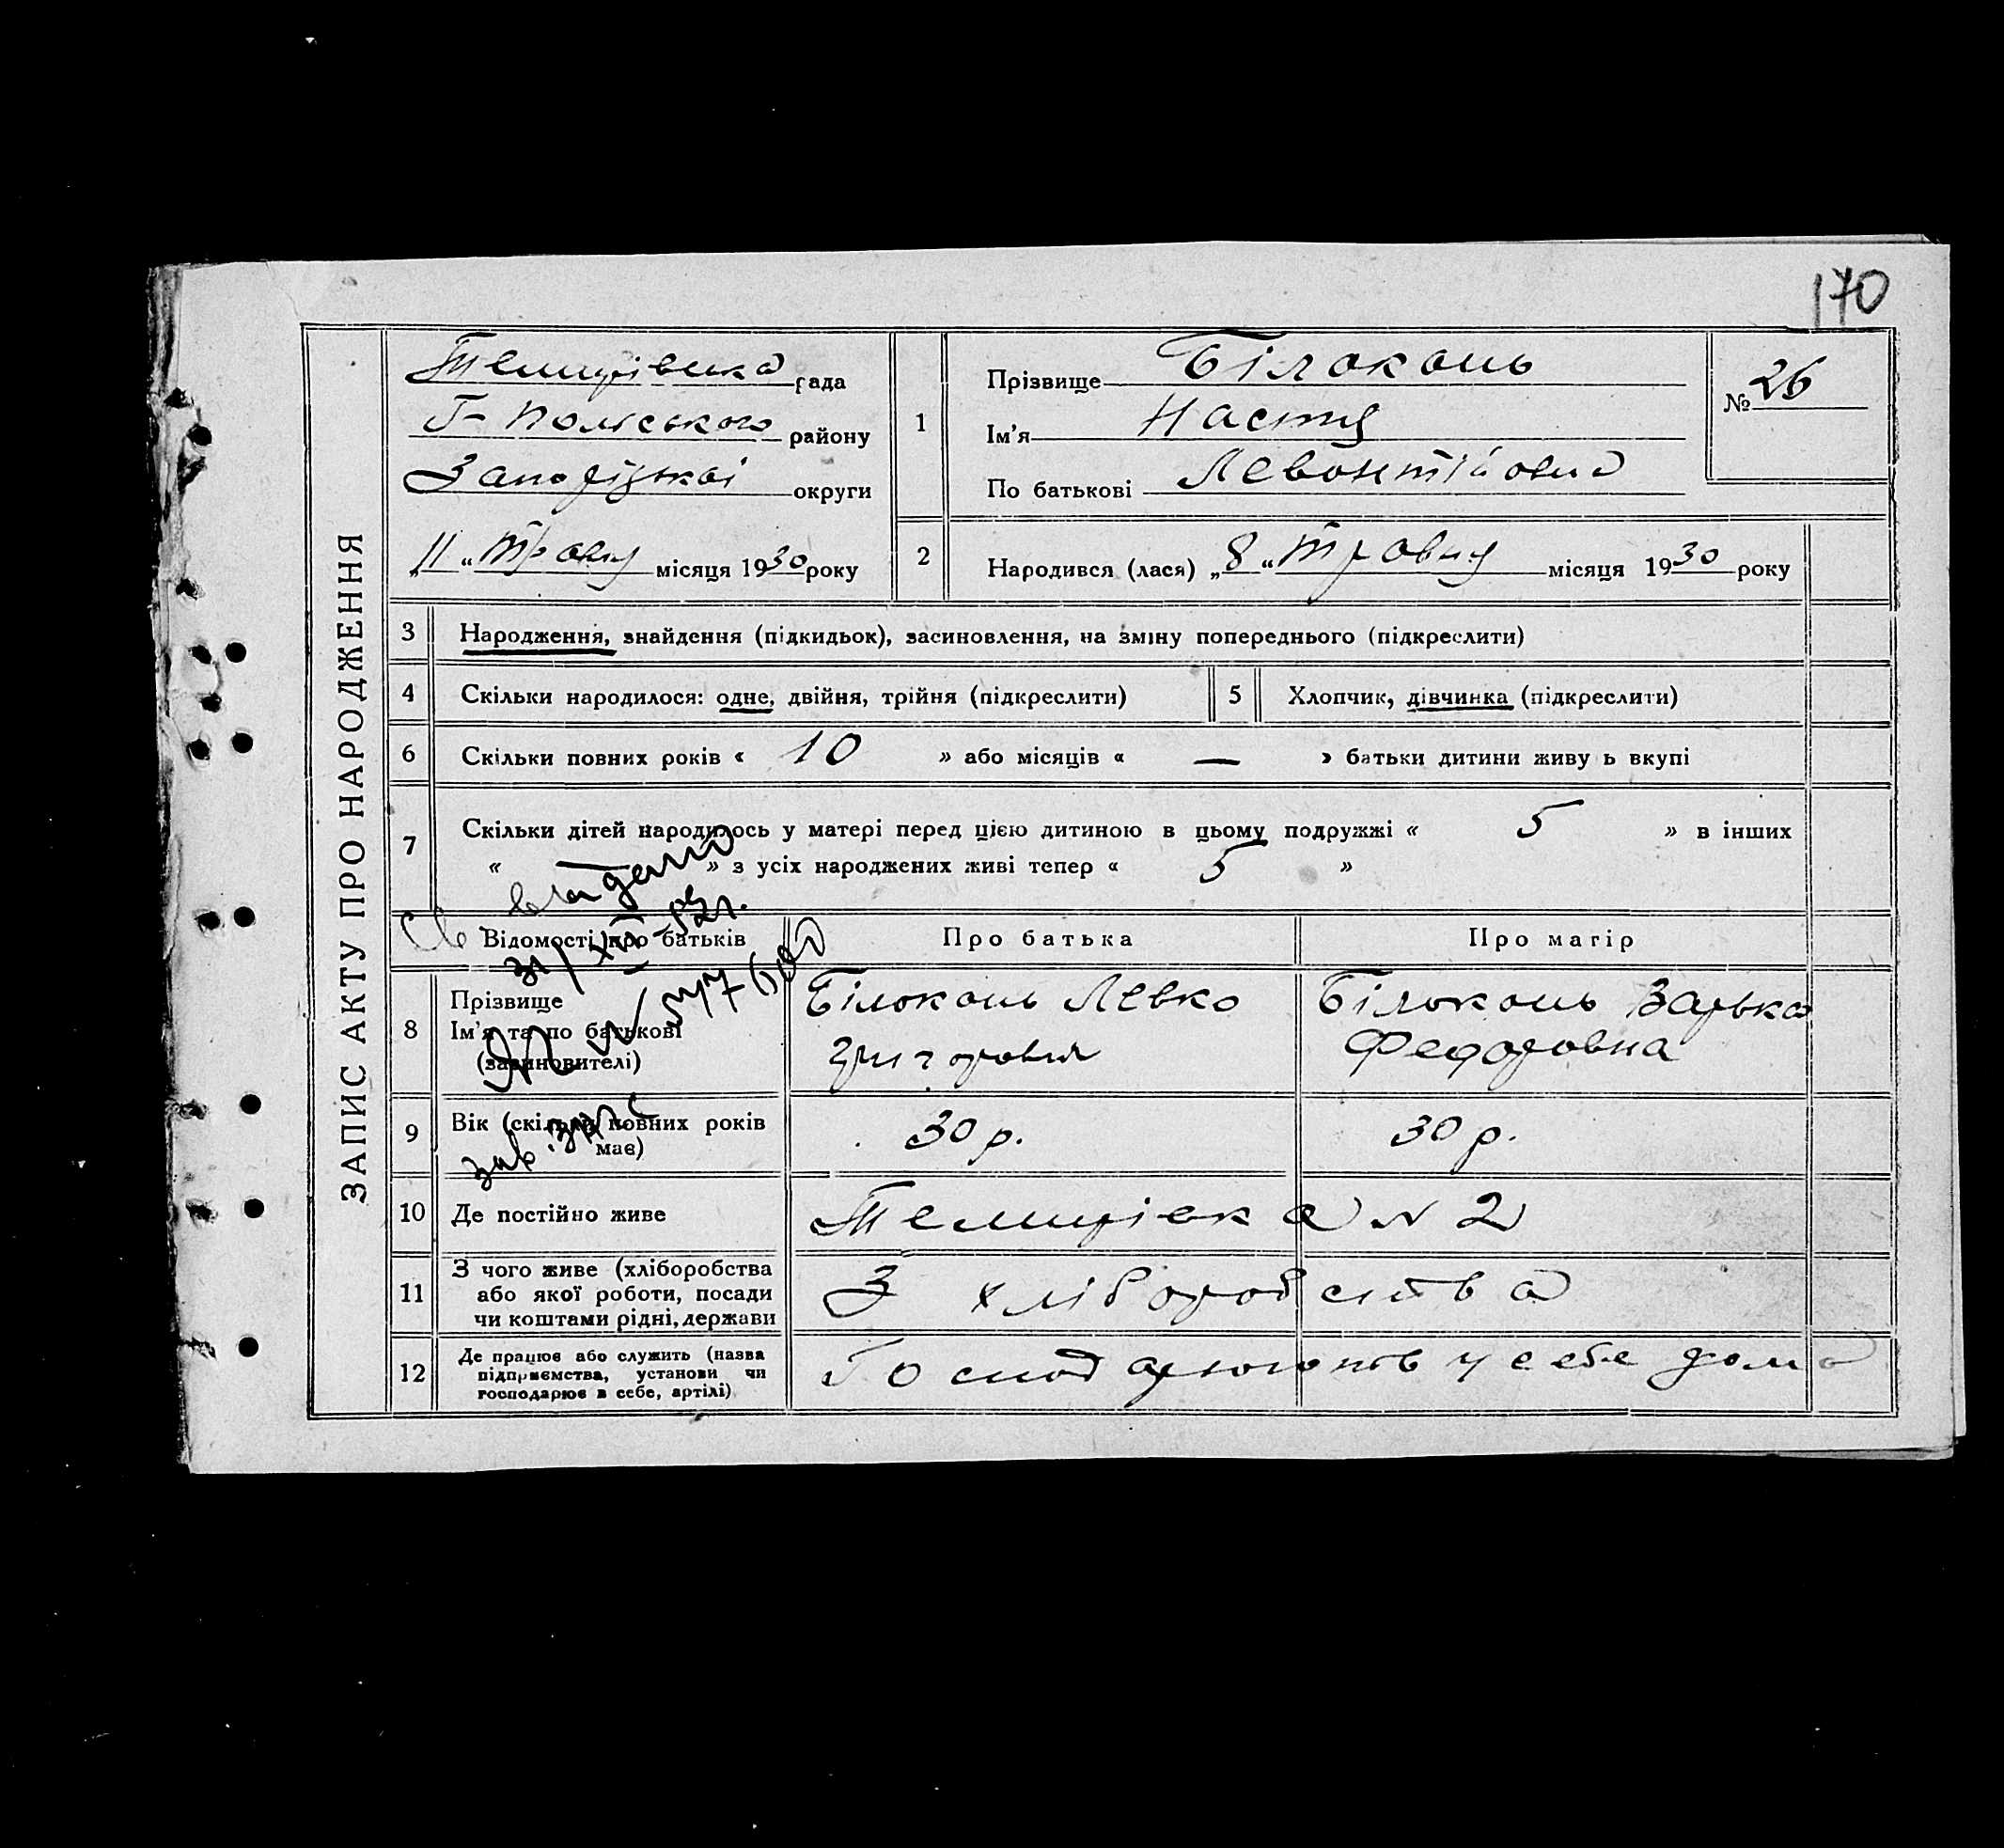 170
ЗАПИС АКТУ ПРО НАРОДЖЕННЯ
Темирівка рада
Г-Польського району
Запорізької округи
„11“ Травня місяця 1930 року
1
Прізвище Білоконь
Ім'я Настя
По батькові Левонтійовна
№ 26
2 Народився (лася) „8“ Травня місяця 1930 року
3 Народження, знайдення (підкидьок), засиновлення, на зміну попереднього (підкреслити)
4 Скільки народилося: одне, двійня, трійня (підкреслити) 5 Хлопчик, дівчинка (підкреслити)
6 Скільки повних років « 10 » або місяців « — » батьки дитини живу ь вкупі
7 Скільки дітей народилось у матері перед цією дитиною в цьому подружжі « 5 » в інших
« — » з усіх народжених живі тепер « 5 »
Відомості про батьків Про батька Про матір
8 Прізвище Білоконь Левко Білоконь
Ім'я та по батькові Федоровна
(засиновителі)
9 Вік (скільки повних років 30 р. 30 р.
має)
10 Де постійно живе Темирівка N 2
11 З чого живе (хліборобства
або якої роботи, посади З хліборобства
чи коштами рідні, держави
12 Де працює або служить (назва Господарюють у себе дома
підприємства, установи чи
господарює в себе, артілі)
31/XII-52г.